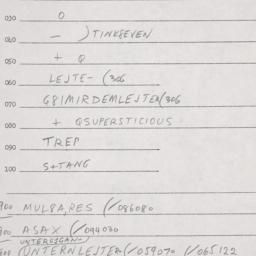 030 O
040 — )TINK8EVEN
050 + Q
060 LEJTE- (306
070 G81MIRDEMLEJTEA(306
080 + QSUPERSTICIOUS
090 TREP
100 S+TANG
900 MUL8A,RES (/086080
900 ASAX (/094030
UNTEREGAN
800 (UNTERNLEJTEA(/059070 (/065122